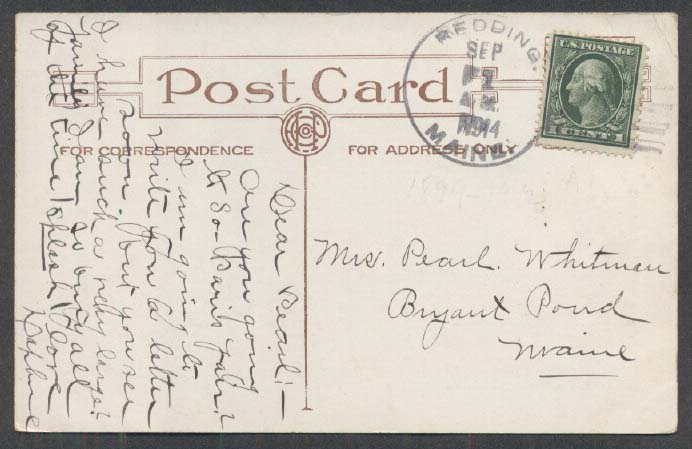 Post Card
FOR CORRESPONDENCE
FOR ADDRESS ONLY
REDDING,
SEP
1914
MAINE
U.S. POSTAGE
1 CENT
Mrs. Pearl Whitman
Bryant Pond
Maine
Dear Pearl:—
Are you going
to So. Paris fair?
I'm going to
write you a letter
soon, but you see
I have such a very large
family I am so busy all
of the time! Splash! love
Daphne